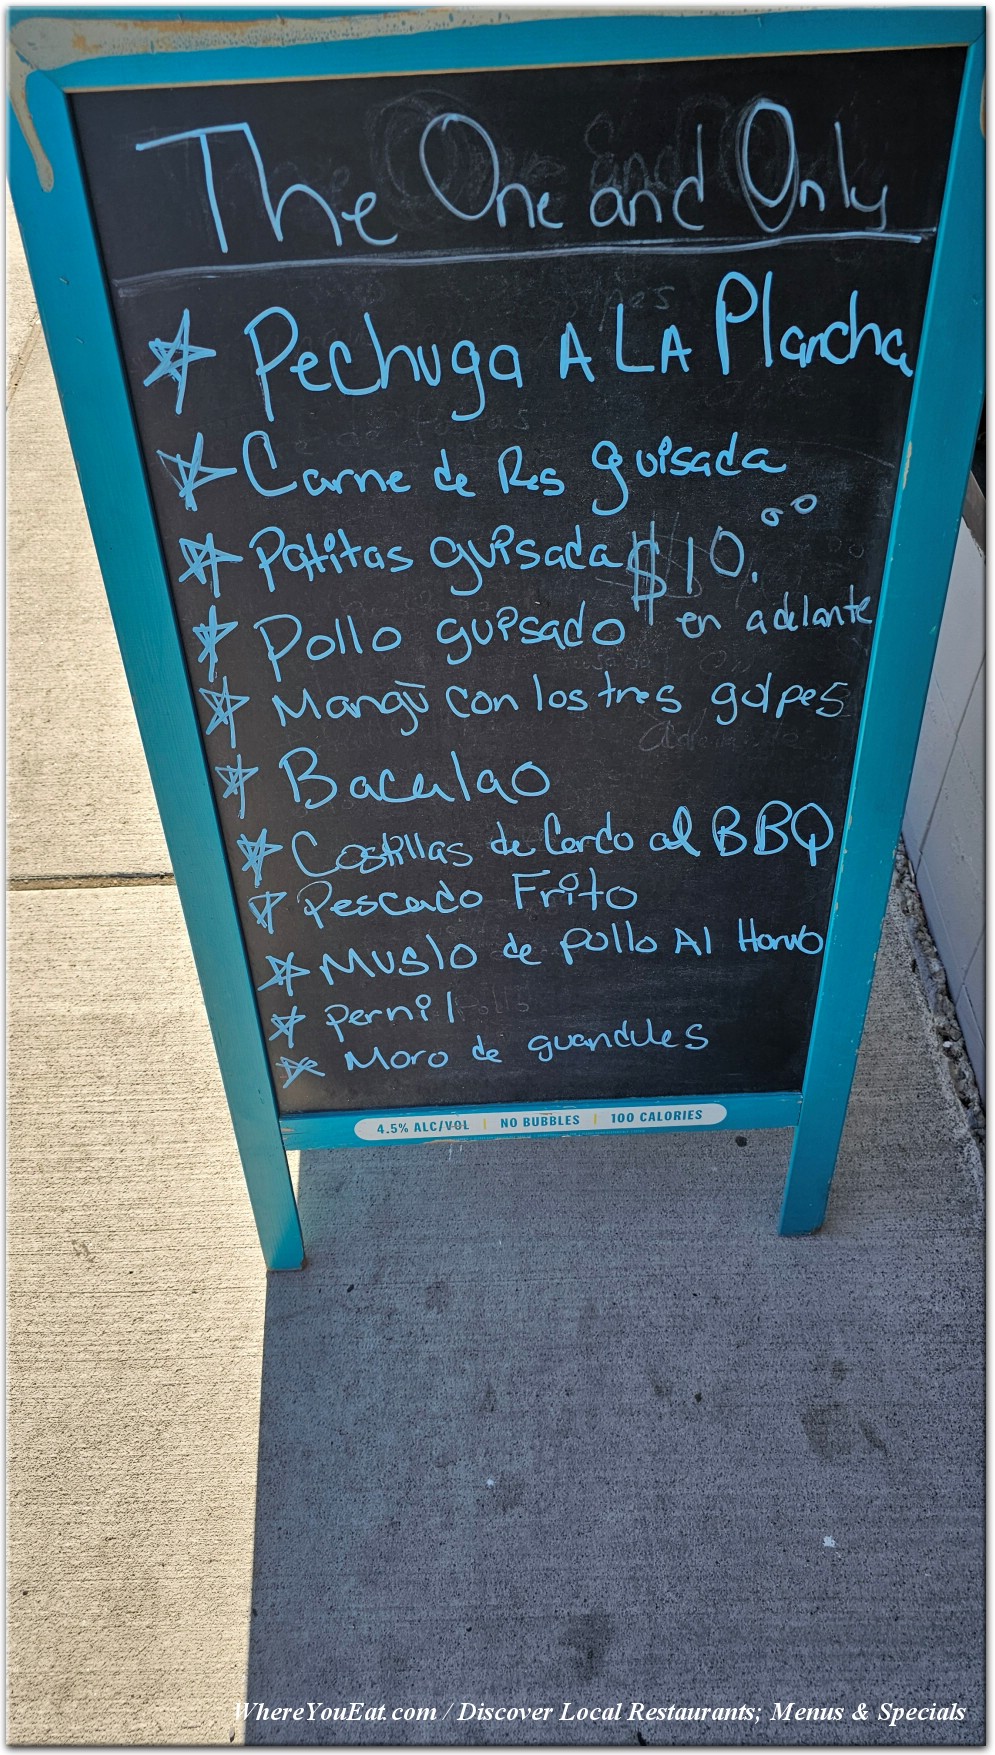 The One and Only
Pechuga A LA Plancha
Carne de Res guisada
Patitas guisada $10.00
Pollo guisado en adelante
Mangù con los tres golpes
Bacalao
Costillas de Cerdo al BBQ
Pescado Frito
Muslo de pollo Al Horno
Pernil
Moro de guandules
4.5% ALC/VOL | NO BUBBLES | 100 CALORIES
WhereYouEat.com / Discover Local Restaurants; Menus & Specials